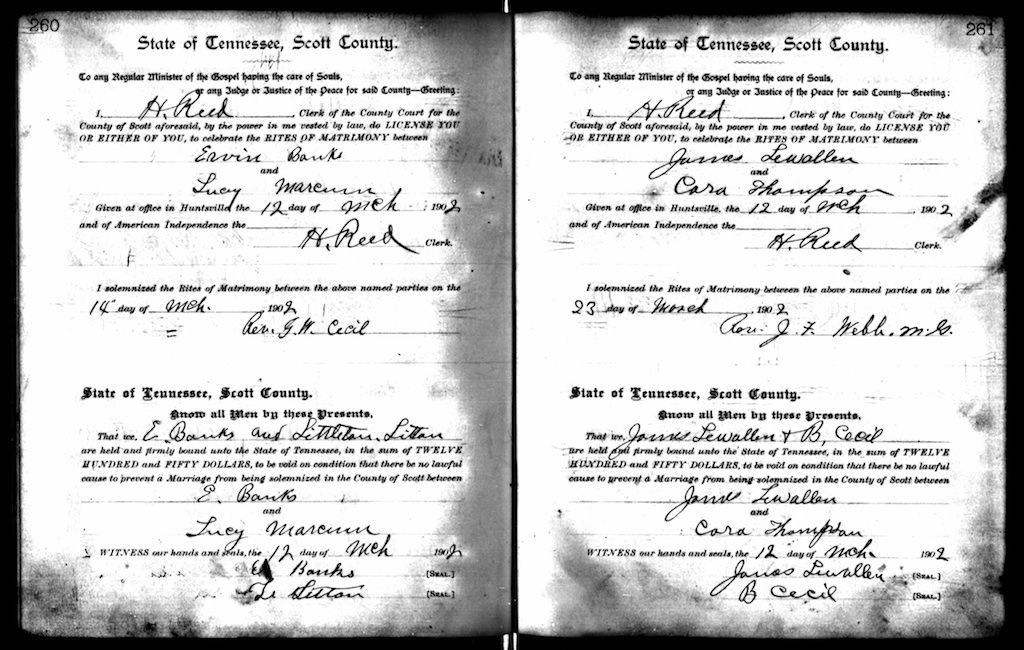 260
State of Tennessee, Scott County.
To any Regular Minister of the Gospel having the care of Souls,
or any Judge or Justice of the Peace for said County—Greeting:
I, H. Reed, Clerk of the County Court for the
County of Scott aforesaid, by the power in me vested by law, do LICENSE YOU
OR EITHER OF YOU, to celebrate the RITES OF MATRIMONY between
Ervin Banks
and
Lucy Marcum
Given at office in Huntsville, the 12 day of Mch 1902
and of American Independence the
H. Reed Clerk.
I solemnized the Rites of Matrimony between the above named parties on the
14 day of Mch. 1902
Rev. G. W. Cecil
State of Tennessee, Scott County.
Know all Men by these Presents,
That we, E. Banks and Littleton Litton
are held and firmly bound unto the State of Tennessee, in the sum of TWELVE
HUNDRED and FIFTY DOLLARS, to be void on condition that there be no lawful
cause to prevent a Marriage from being solemnized in the County of Scott between
E. Banks
and
Lucy Marcum
WITNESS our hands and seals, the 12 day of Mch 1902
E Banks [SEAL.]
Litton [SEAL.]
261
State of Tennessee, Scott County.
To any Regular Minister of the Gospel having the care of Souls,
or any Judge or Justice of the Peace for said County—Greeting:
I, H. Reed, Clerk of the County Court for the
County of Scott aforesaid, by the power in me vested by law, do LICENSE YOU
OR EITHER OF YOU, to celebrate the RITES OF MATRIMONY between
James Lewallen
and
Cora Thompson
Given at office in Huntsville, the 12 day of Mch, 1902
and of American Independence the
H. Reed Clerk.
I solemnized the Rites of Matrimony between the above named parties on the
23 day of March, 1902
Rev. J. F. Webb. M.G.
State of Tennessee, Scott County.
Know all Men by these Presents,
That we, James Lewallen & B, Cecil
are held and firmly bound unto the State of Tennessee, in the sum of TWELVE
HUNDRED and FIFTY DOLLARS, to be void on condition that there be no lawful
cause to prevent a Marriage from being solemnized in the County of Scott between
James Lewallen
and
Cora Thompson
WITNESS our hands and seals, the 12 day of Mch. 1902
James Lewallen [SEAL.]
B Cecil [SEAL.]